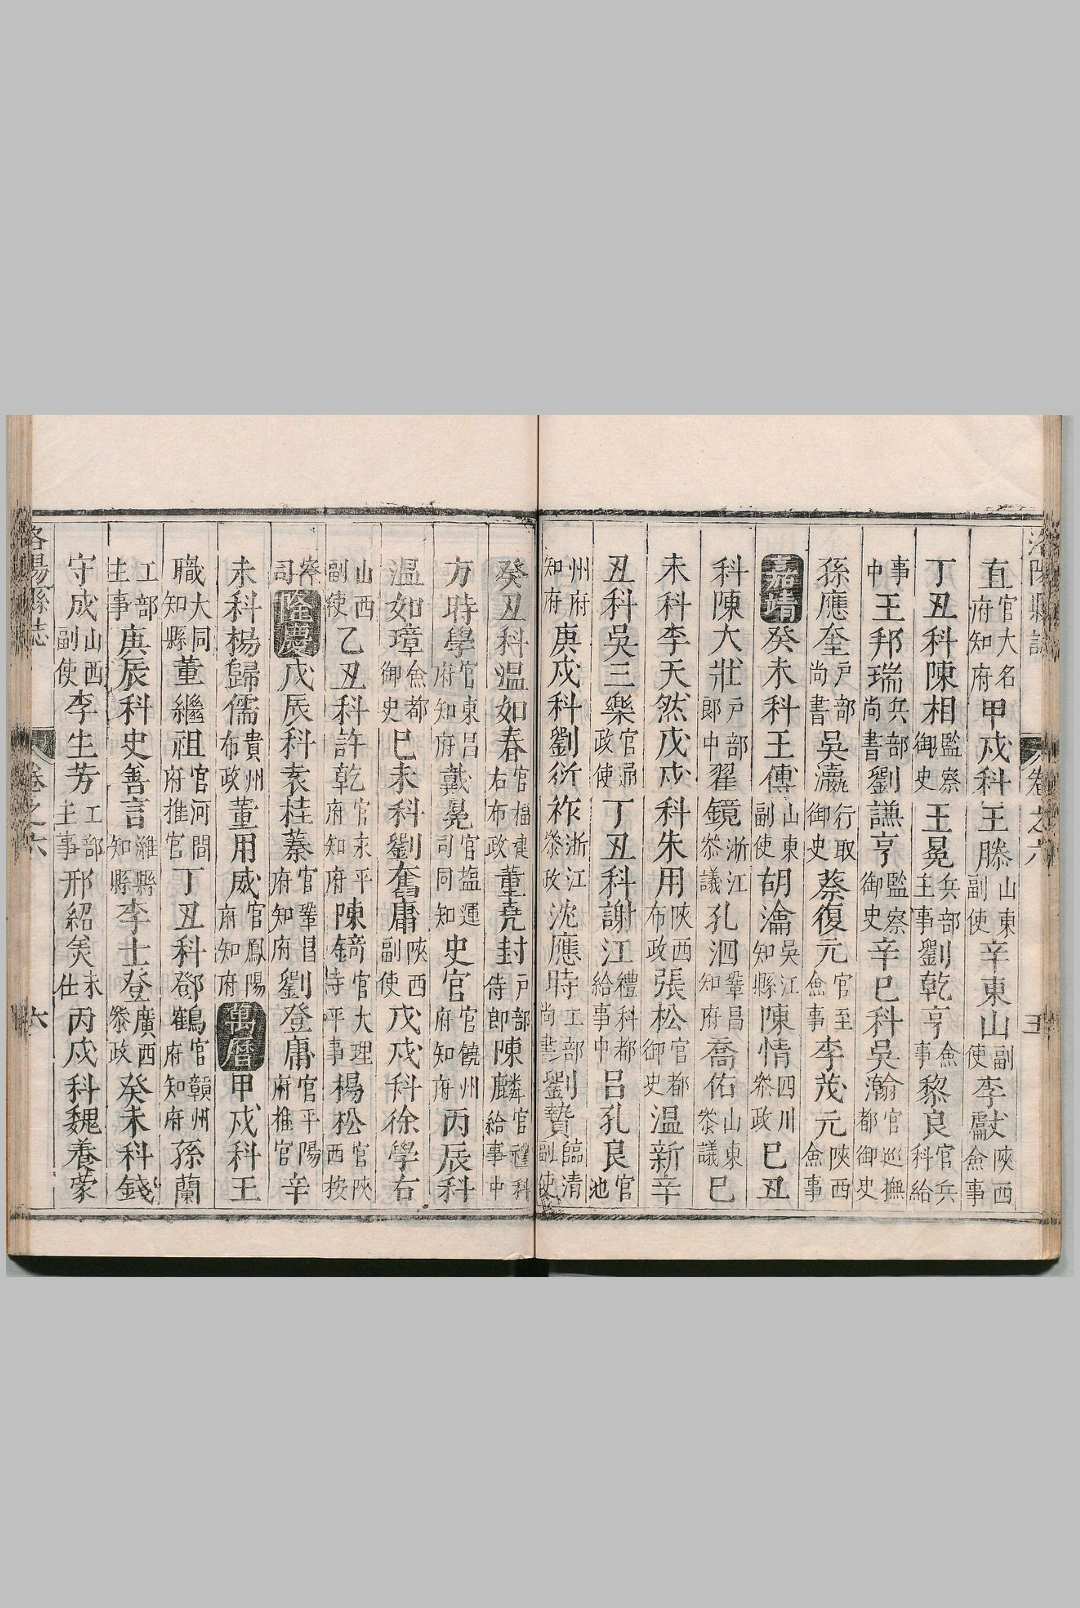 洛陽縣誌 卷之六 五
直官大名府知府甲戌科王滕山東副使辛東山副使李獻陝西僉事
丁丑科陳相監察御史王冕兵部主事劉乾亨僉事黎良官兵科給
事中王邦瑞兵部尚書劉謙亨監察御史辛巳科吳瀚官巡撫都御史
孫應奎戶部尚書吳瀛行取御史蔡復元官至僉事李茂元陝西僉事
嘉靖癸未科王傳山東副使胡瀹吳江知縣陳情四川叅政巳丑
科陳大壯戶部郎中翟鏡浙江叅議孔泗鞏昌知府喬佑山東叅議巳
未科李天然戊戌科朱用陝西布政張松官都御史溫新辛
丑科吳三樂官政使丁丑科謝江禮科都給事中呂孔良官池
州府知府庚戌科劉衍祚浙江叅政沈應時工部尚書劉贄臨清副使
癸丑科溫如春官右布政董堯封戶部侍郎陳麟官禮科給事中
方時學官東昌府知府戴冕官鹽運司同知史官官饒州府知府丙辰科
溫如璋僉都御史巳未科劉奮庸陝西副使戊戌科徐學右
山西副使乙丑科許乾官永平府知府陳錡官大理寺平事楊松官陝西按
察司隆慶戊辰科袁桂蓁官鞏昌府知府劉登庸官平陽府推官辛
未科楊歸儒貴州布政董用威官鳳陽府知府萬曆甲戌科王
職大同知縣董繼祖官河間府推官丁丑科鄧鶴官贛州府知府孫蘭
工部主事庚辰科史善言濰縣知縣李士登廣西叅政癸未科錢
守成山西副使李生芳工部主事邢紹美未仕丙戌科魏養蒙
洛陽縣誌 卷之六 六